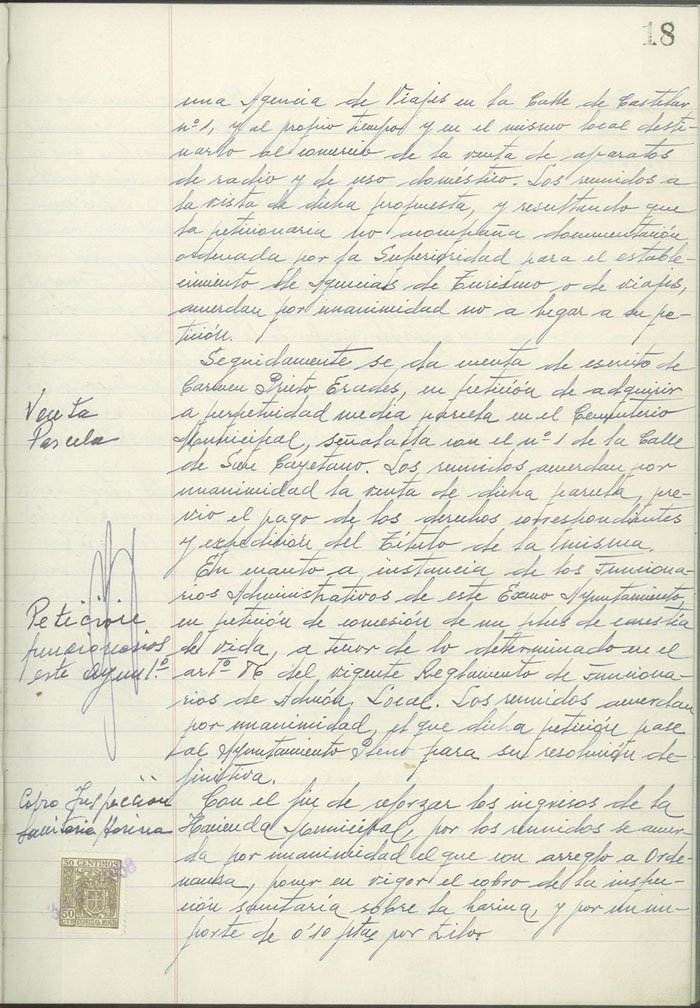 18
una Agencia de Viajes en la Calle de Castelar
nº 1, y al propio tiempo y en el mismo local desti-
narlo al comercio de la venta de aparatos
de radio y de uso doméstico. Los reunidos a
la vista de dicha propuesta, y resultando que
la peticionaria no acompaña documentación
ordenada por la Superioridad para el estable-
cimiento de Agencias de Turismo o de viajes,
acuerdan por unanimidad no a lugar a su pe-
tición.
Seguidamente se da cuenta de escrito de
Carmen Prieto Erades, en petición de adquirir
Venta
Parcela
a perpetuidad media parcela en el Cementerio
Municipal, señalada con el nº 1 de la Calle
de San Cayetano. Los reunidos acuerdan por
unanimidad la venta de dicha parcela, pre-
vio el pago de los derechos correspondientes
y expedición del Título de la misma.
En cuanto a instancia de los Funciona-
rios Administrativos de este Excmo Ayuntamiento,
Petición
funcionarios
este Ayuntº.
en petición de concesión de un plus de carestía
de vida, a tenor de lo determinado en el
artº 86 del vigente Reglamento de Funciona-
rios de Admón. Local. Los reunidos acuerdan
por unanimidad, el que dicha petición pase
al Ayuntamiento Pleno para su resolución de-
finitiva.
Cobro Inspección
Sanitaria Harina
Con el fin de reforzar los ingresos de la
Hacienda Municipal, por los reunidos se acuer-
da por unanimidad el que con arreglo a Orde-
nanza, poner en vigor el cobro de la inspec-
ción sanitaria sobre la harina, y por un im-
porte de 0'10 ptas por kilo.
50 CENTIMOS
50
CTS
ESPECIAL MOVIL